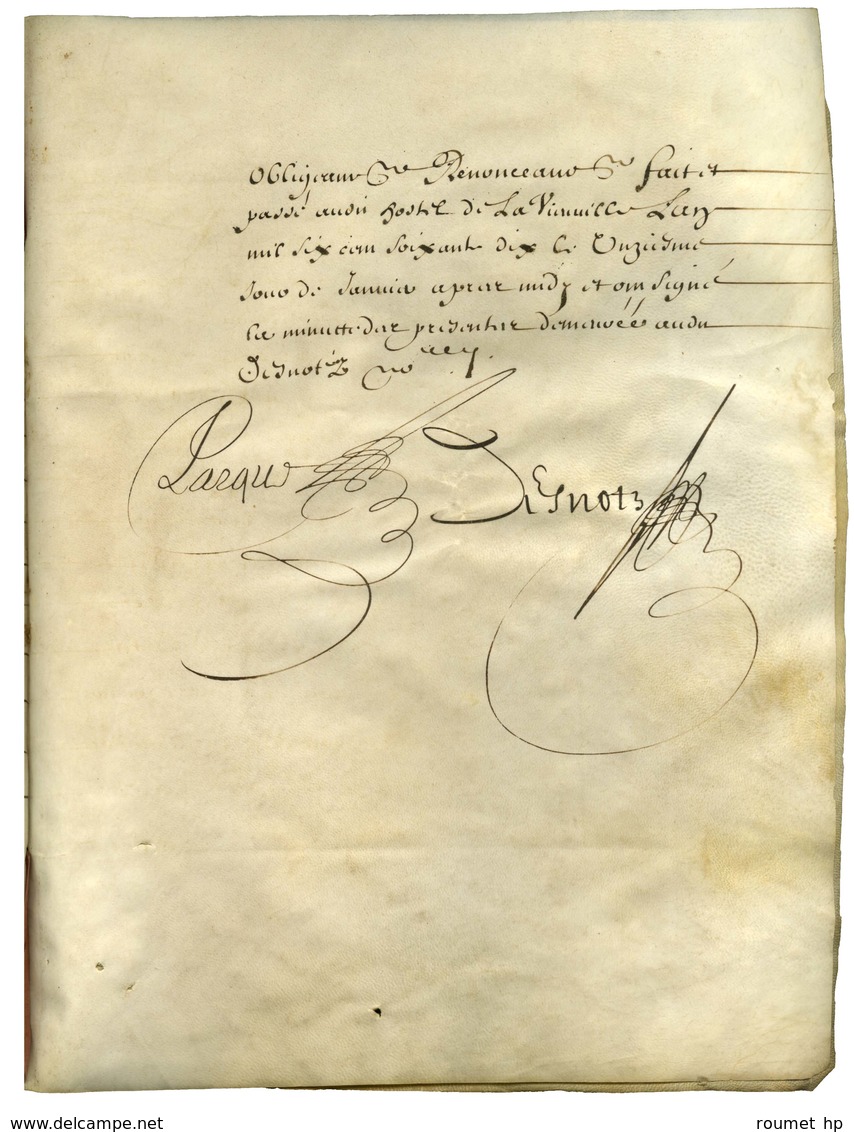 Obligeant &c Renonceant &c fait et
passé audit hostel de La Vieuville Lan
mil six cen soixante dix le Unziesme
Jour de Janvier apres midy et ont signé
la minutte des presentes demeurée audit
Desnotz no.re
Parque Desnotz
www.delcampe.net
roumet hp